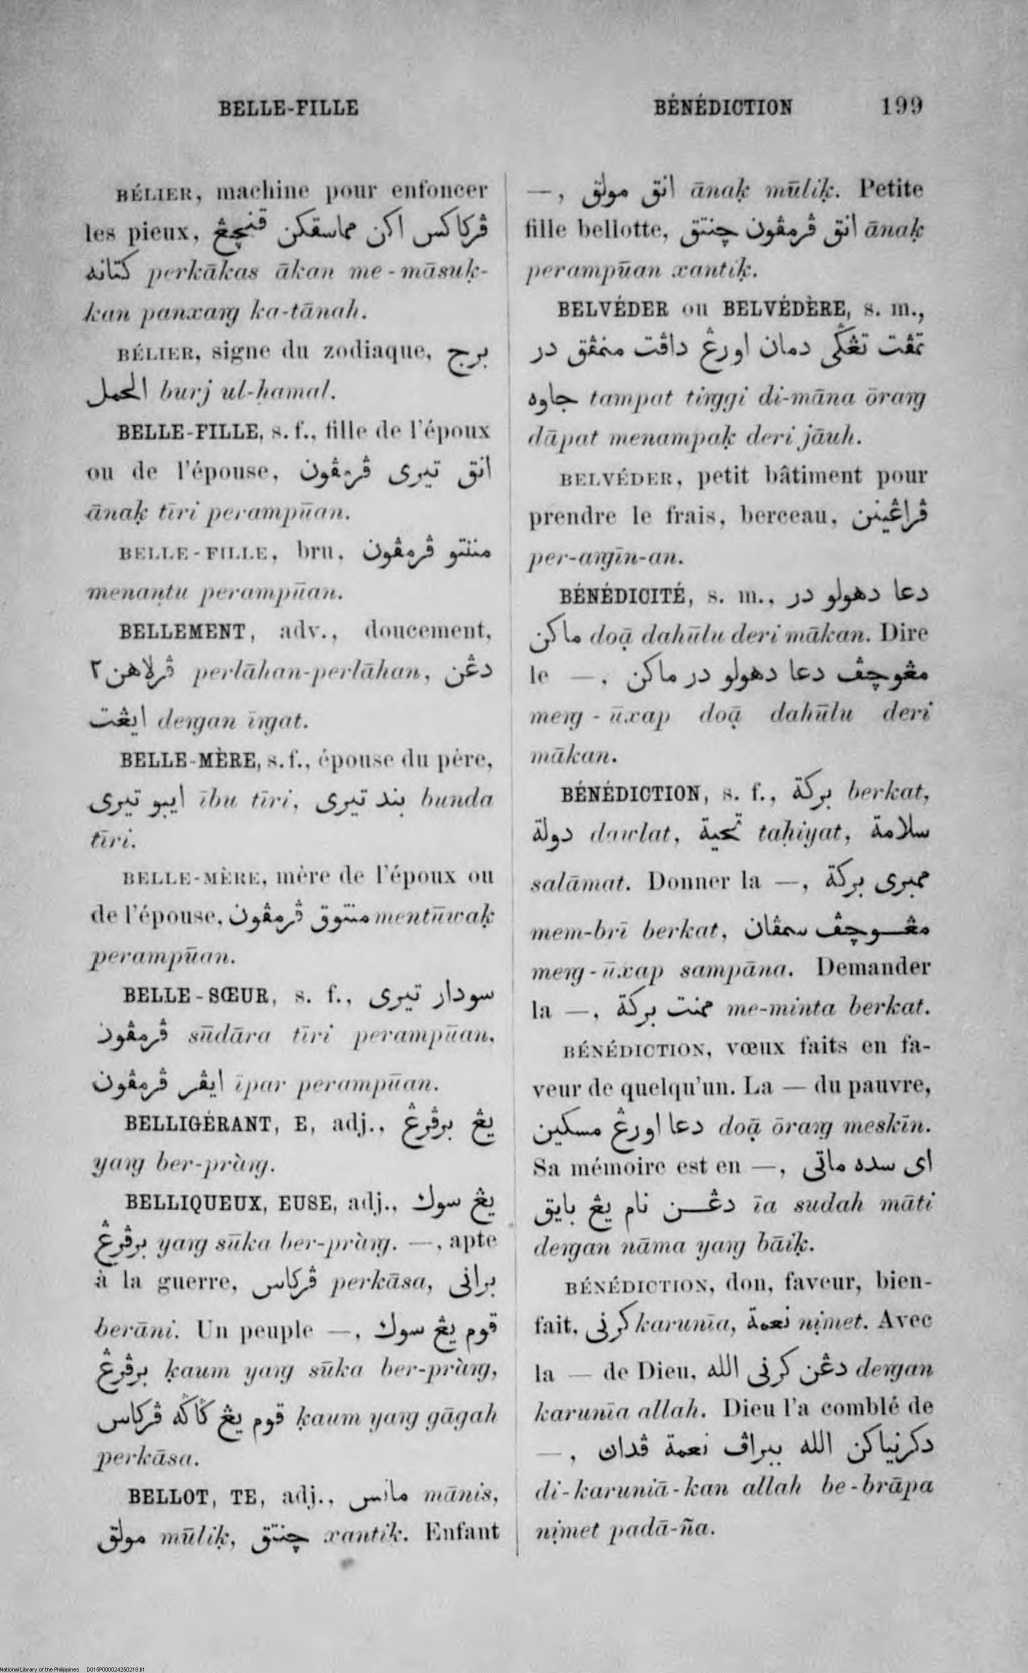 BELLE-FILLE BÉNÉDICTION 199
BÉLIER, machine pour enfoncer
les pieux, ڤرکاکس اکن مماسقکن ڤنچڠ
کتانه perkākas ākan me-māsuḳ-
kan panxaŋ ka-tānah.
BÉLIER, signe du zodiaque, برج
الحمل burj ul-ḥamal.
BELLE-FILLE, s. f., fille de l'époux
ou de l'épouse, انق تيرى ڤرمڤون
ānaḳ tīri perampūan.
BELLE-FILLE, bru, مننتو ڤرمڤون
menantu perampūan.
BELLEMENT, adv., doucement,
ڤرلاهن٢ perlāhan-perlāhan, دڠن
ايڠت deŋan īŋgat.
BELLE-MÈRE, s. f., épouse du père,
ايبو تيرى ību tīri, بند تيرى bunda
tīri.
BELLE-MÈRE, mère de l'époux ou
de l'épouse, منتوق ڤرمڤون mentūwaḳ
perampūan.
BELLE-SŒUR, s. f., سودار تيرى
ڤرمڤون sūdāra tīri perampūan,
ايڤر ڤرمڤون īpar perampūan.
BELLIGÉRANT, E, adj., يڠ برڤرڠ
yaŋ ber-pràŋ.
BELLIQUEUX, EUSE, adj., يڠ سوك
برڤرڠ yaŋ sūka ber-pràŋ. —, apte
à la guerre, ڤركاس perkāsa, برانى
berāni. Un peuple —, قوم يڠ سوك
برڤرڠ ḳaum yaŋ sūka ber-pràŋ,
قوم يڠ ڬاڬه ڤركاس ḳaum yaŋ gāgah
perkāsa.
BELLOT, TE, adj., مانس mānis,
مولق mūliḳ, چنتق xantik. Enfant
—, انق مولق ānaḳ mūliḳ. Petite
fille bellotte, انق ڤرمڤون چنتق ānaḳ
perampūan xantiḳ.
BELVÉDER ou BELVÉDÈRE, s. m.,
تمڤت تڠڬى دمان اورڠ داڤت منمڤق در
جاوه tampat tiŋgi di-māna ōraŋ
dāpat menampaḳ deri jāuh.
BELVÉDER, petit bâtiment pour
prendre le frais, berceau, ڤراڠينن
per-aŋīn-an.
BÉNÉDICITÉ, s. m., دعا دهولو در
ماكن doạ̄ dahūlu deri mākan. Dire
le —, مڠوچڤ دعا دهولو در ماكن
meŋ-ūxap doạ̄ dahūlu deri
mākan.
BÉNÉDICTION, s. f., بركة berkat,
دولة dawlat, تحية taḥiyat, سلامة
salāmat. Donner la —, ممبرى بركة
mem-brī berkat, مڠوچڤ سمڤان
meŋ-ūxap sampāna. Demander
la —, ممنت بركة me-minta berkat.
BÉNÉDICTION, vœux faits en fa-
veur de quelqu'un. La — du pauvre,
دعا اورڠ مسكين doạ̄ ōraŋ meskīn.
Sa mémoire est en —, اى سده ماتى
دڠن نام يڠ بايق īa sudah māti
deŋan nāma yaŋ bāiḳ.
BÉNÉDICTION, don, faveur, bien-
fait, كرنى karunīa, نعمة nịmet. Avec
la — de Dieu, دڠن كرنى الله deŋan
karunīa allah. Dieu l'a comblé de
—, دكرنياكن الله ببراڤ نعمة ڤداڽ
di-karuniā-kan allah be-brāpa
nịmet padā-ña.
National Library of the Philippines